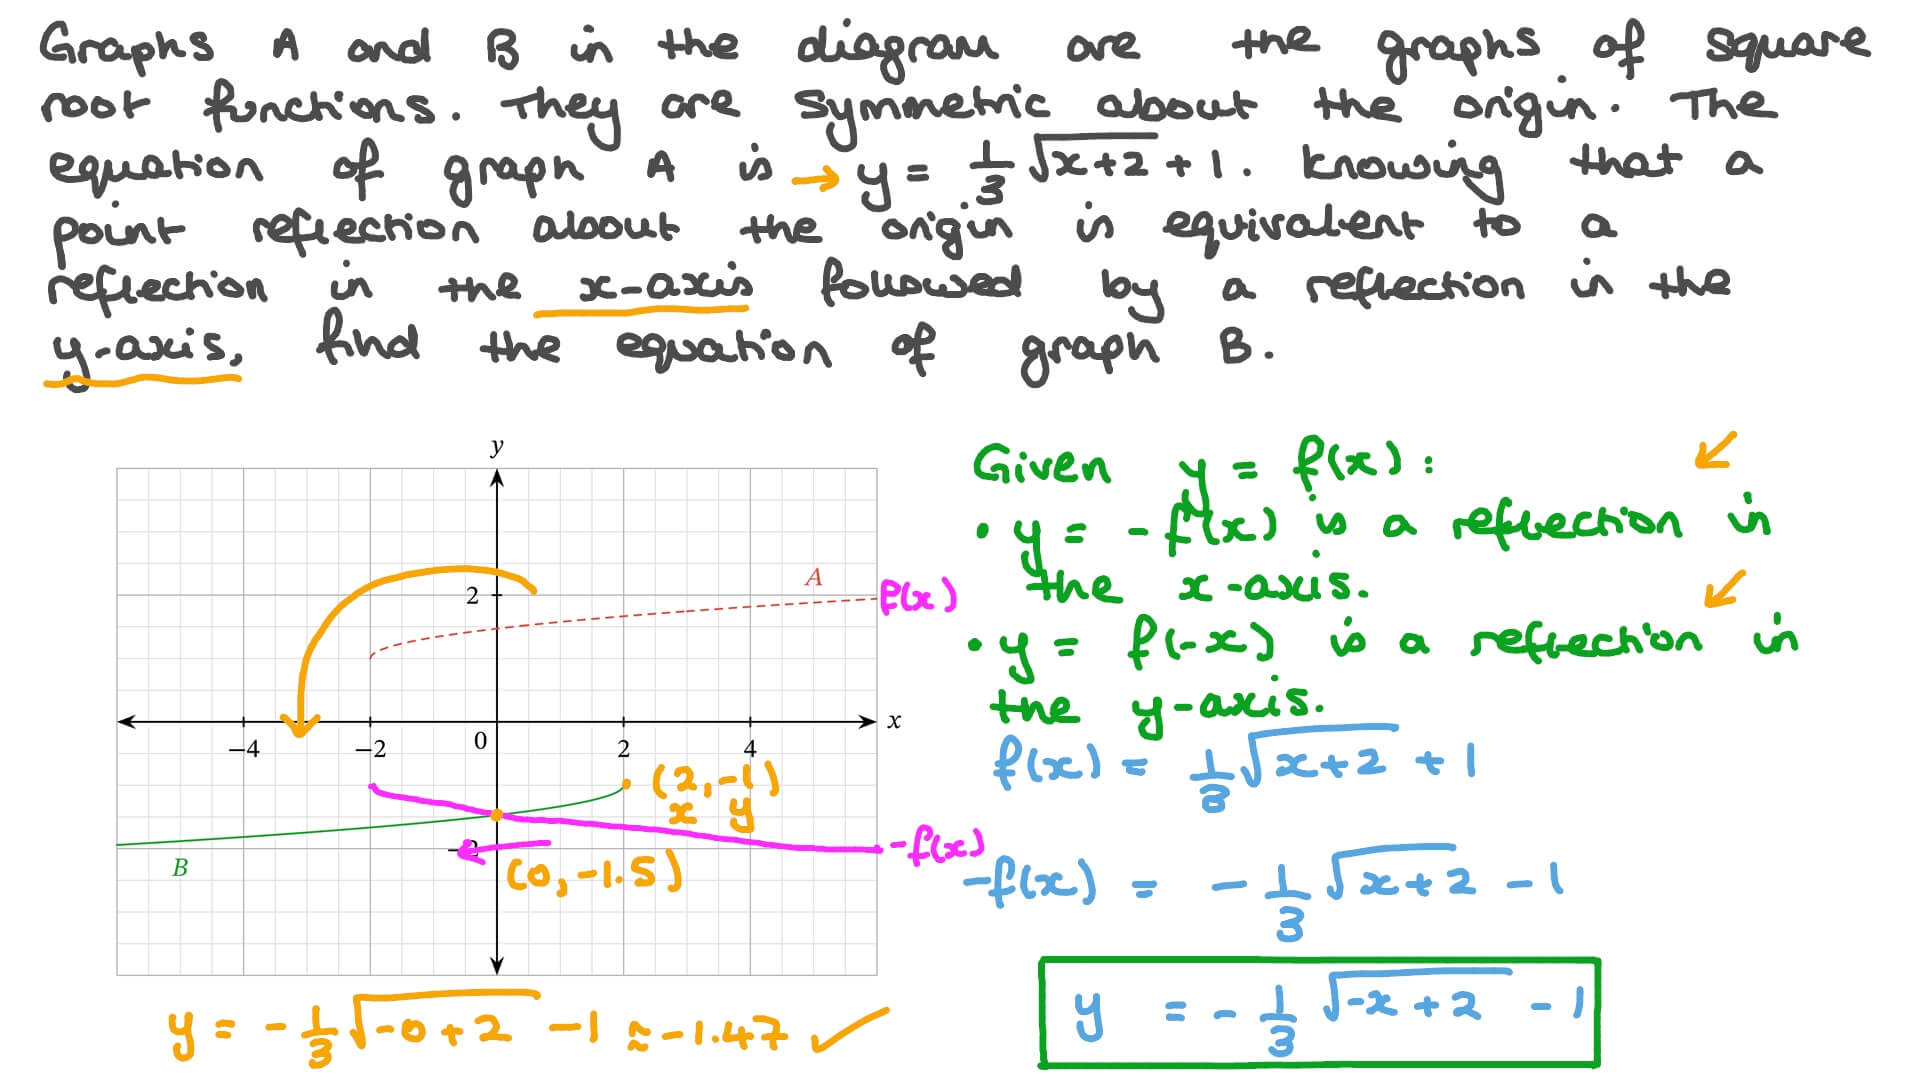 Graphs A and B in the diagram are the graphs of square
root functions. They are symmetric about the origin. The
equation of graph A is → y = 1/3 √(x+2) + 1. Knowing that a
point reflection about the origin is equivalent to a
reflection in the x-axis followed by a reflection in the
y-axis, find the equation of graph B.
y
2
A
f(x)
x
−4
−2
0
2
4
(2, -1)
x y
−2
-f(x)
(0, -1.5)
B
y = -1/3 √(-0+2) - 1 ≈ -1.47 ✓
Given y = f(x):
• y = -f(x) is a reflection in
the x-axis.
• y = f(-x) is a reflection in
the y-axis.
f(x) = 1/3 √(x+2) + 1
-f(x) = -1/3 √(x+2) - 1
y = -1/3 √(-x+2) - 1